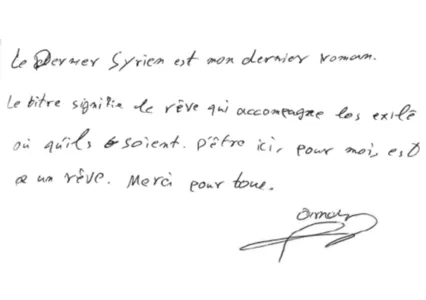 Le Dernier Syrien est mon dernier roman.
Le titre signifie le rêve qui accompagne les exilé
où qu'ils soient. D'être ici, pour moi, est
un rêve. Merci pour tous.
Omar